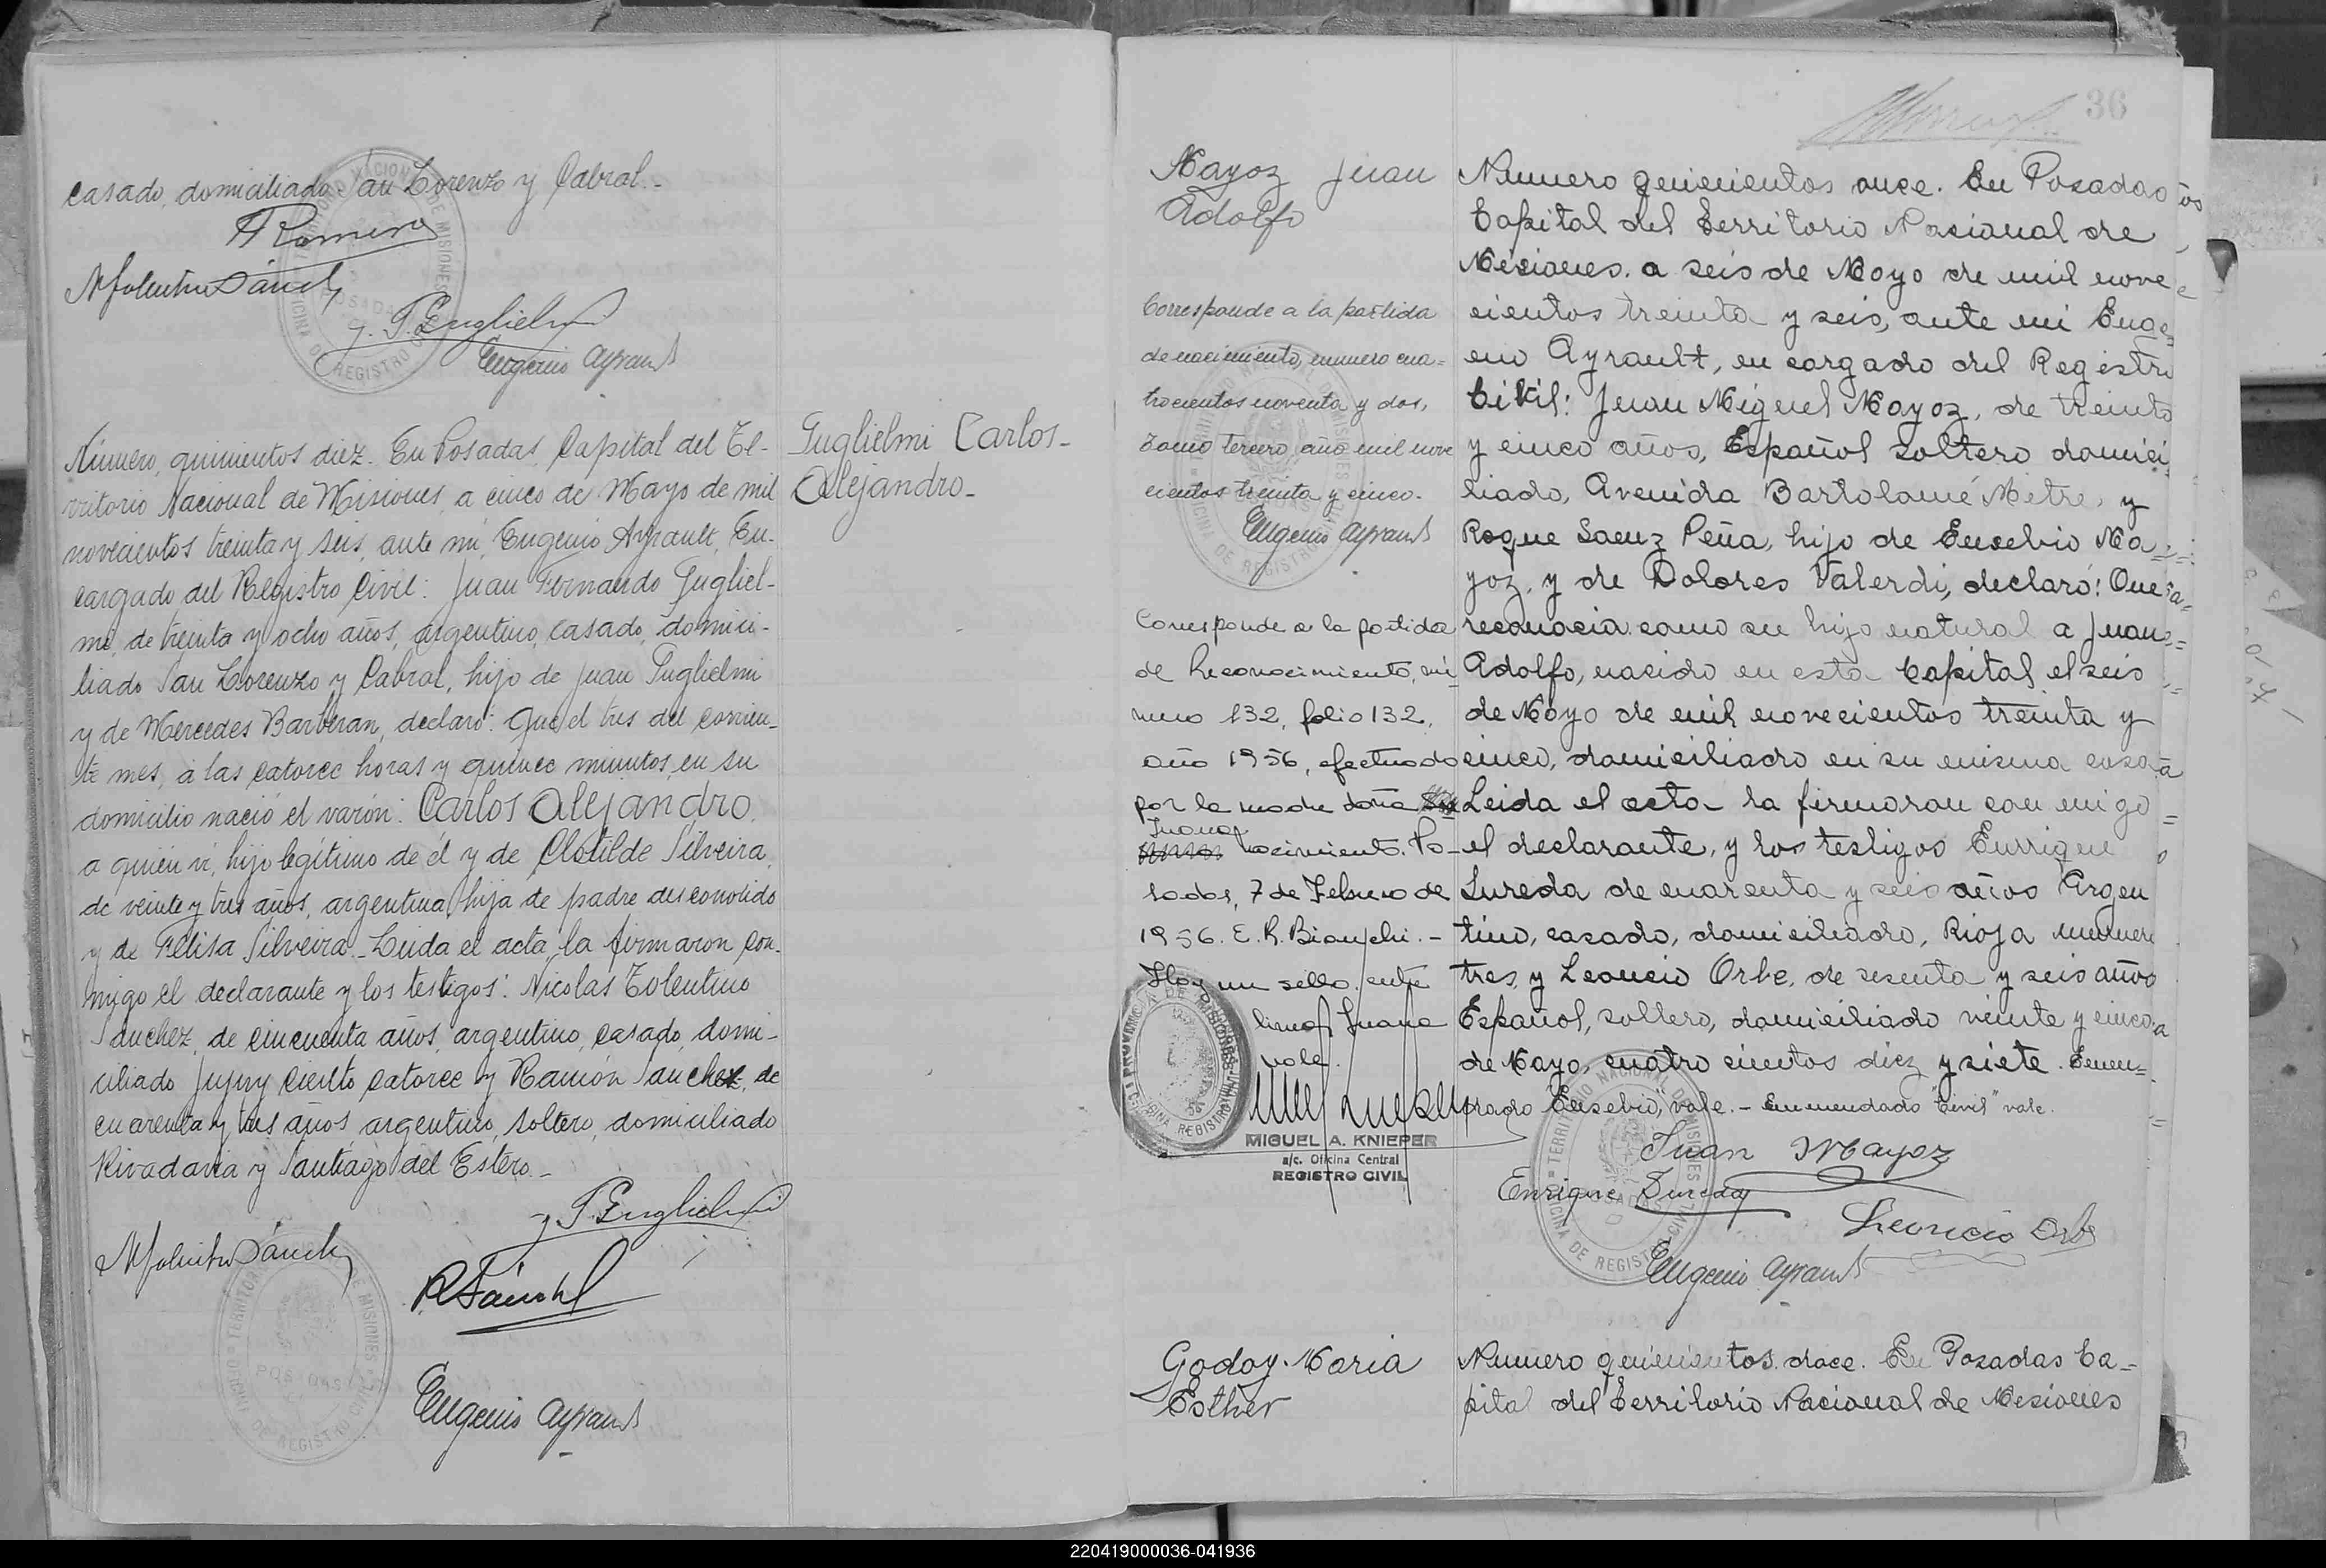 casado, domiciliado San Lorenzo y Cabral.-
Eugenio Ayrault
Número, quinientos diez. En Posadas, Capital del Te-
rritorio Nacional de Misiones, a cinco de Mayo de mil
novecientos treinta y seis, ante mí, Eugenio Ayrault, En-
cargado del Registro Civil: Juan Fernando Gugliel-
mi, de treinta y ocho años, argentino, casado, domici-
liado San Lorenzo y Cabral, hijo de Juan Guglielmi
y de Mercedes Barberan, declaró: Que el tres del corrien-
te mes, a las catorce horas y quince minutos, en su
domicilio nació el varón: Carlos Alejandro,
a quién ví, hijo legítimo de él y de Clotilde Silveira,
de veinte y tres años, argentina, hija de padre desconocido
y de Felisa Silveira.- Leida el acta, la firmaron con-
migo el declarante y los testigos: Nicolas Tolentino
Sanchez, de cincuenta años, argentino, casado, domi-
ciliado Jujuy ciento catorce y Ramón Sanchez, de
cuarenta y tres años, argentino, soltero, domiciliado
Rivadavia y Santiago del Estero.-
Eugenio Ayrault
Guglielmi Carlos-
Alejandro-
36
Mayoz Juan
Adolfo
Corresponde a la partida
de nacimiento, numero cua=
trocientos noventa y dos,
Tomo tercero, año mil nove
cientos treinta y cinco.
Eugenio Ayrault
Corresponde a la partida
de Reconocimiento, nú-
mero 132, folio 132,
año 1956, efectuado
por la madre doña
Juana
Nacimiento. Po-
sadas, 7 de Febrero de
1956. E. R. Bianchi.-
Hay un sello. entre
lineas Juana
vale.
MIGUEL A. KNIEPER
a/c. Oficina Central
REGISTRO CIVIL
Numero quinientos once. En Posadas
Capital del Territorio Nacional de
Misiones. a seis de Mayo de mil nove
cientos treinta y seis, ante mi Euge
nio Ayrault, en cargado del Registro
Civil: Juan Miguel Mayoz, de treinta
y cinco años, Español soltero domici
liado, Avenida Bartolomé Mitre, y
Roque Saenz Peña, hijo de Eusebio Ma
yoz, y de Dolores Valerdi, declaró: Que
reconocia como su hijo natural a Juan
Adolfo, nacido en esta Capital el seis
de Mayo de mil novecientos treinta y
cinco, domiciliado en su misma casa
Leida el acta la firmaron con migo
el declarante, y los testigos Enrrique
Sureda de cuarenta y seis años Argen
tino, casado, domiciliado, Rioja numero
tres, y Leoncio Orbe, de sesenta y seis años
Español, soltero, domiciliado veinte y cinco
de Mayo, cuatro cientos diez y siete. Enmen=
dado "Eusebio," vale.- Enmendado "Civil" vale.
Juan Mayoz
Enrique Sureda
Leoncio Orbe
Eugenio Ayrault
Godoy Maria
Esther
Numero quinientos doce. En Posadas Ca-
pital del Territorio Nacional de Misiones
220419000036-041936